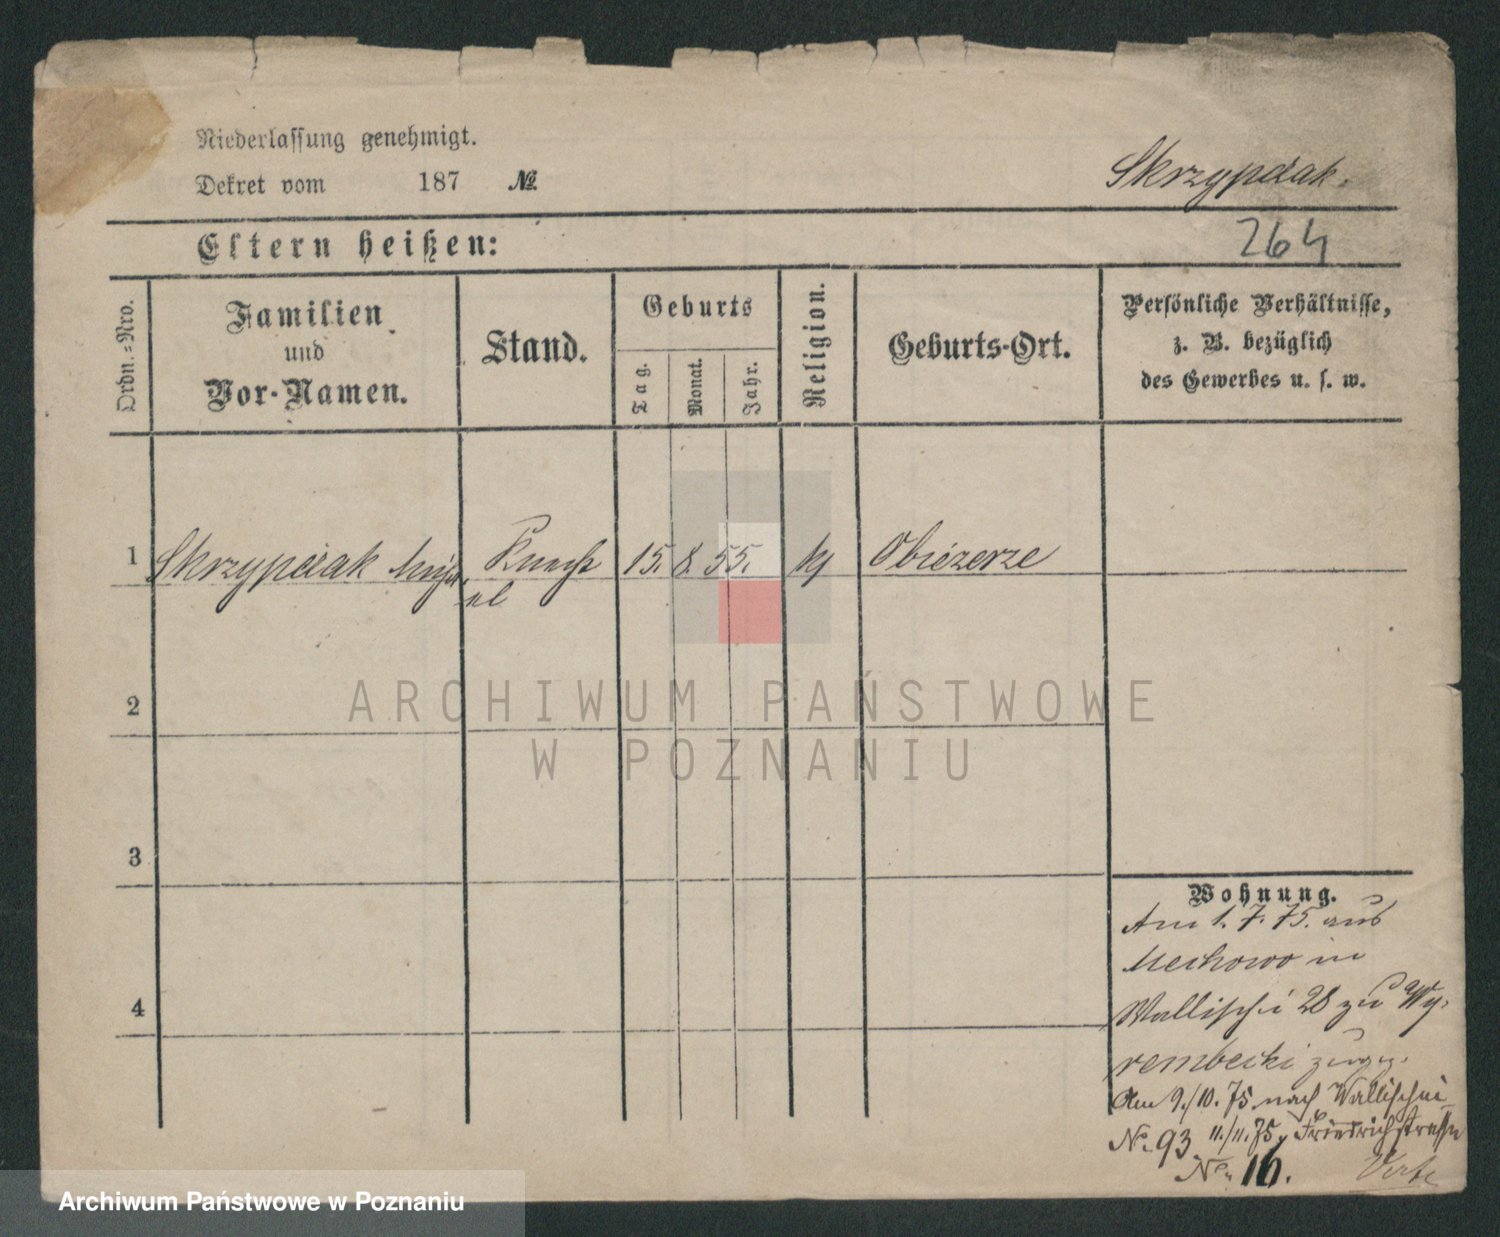 Niederlassung genehmigt.
Dekret vom 187 №
Skrzypczak.
Eltern heißen:
264
Ordn.=Nro.
Familien
und
Vor-Namen.
Stand.
Geburts
Tag.
Monat.
Jahr.
Religion.
Geburts-Ort.
Persönliche Verhältnisse,
z. B. bezüglich
des Gewerbes u. s. w.
1 Skrzypczak Micha Knecht 15. 8. 55. kj Obiezerze
el
2
ARCHIWUM PAŃSTWOWE
W POZNANIU
3
Wohnung.
Am 1. 7. 75. aus
Mechowo in
4
Wallischei 28 zu Wy-
rembecki zugez.
Am 9./10. 75 nach Wallischei
No. 93 11./11. 75 Friedrichstrasse
No. 16.
Archiwum Państwowe w Poznaniu